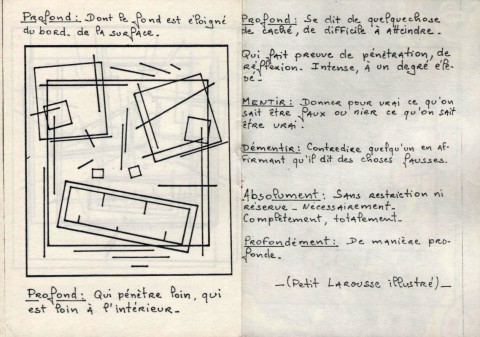 Profond : Dont le fond est éloigné
du bord, de la surface.
Profond : Qui pénètre loin, qui
est loin à l'intérieur.
Profond : Se dit de quelquechose
de caché, de difficile à atteindre.
Qui fait preuve de pénétration, de
réflexion. Intense, à un degré éle-
vé.
Mentir : Donner pour vrai ce qu'on
sait être faux ou nier ce qu'on sait
être vrai.
Démentir : Contredire quelqu'un en af-
firmant qu'il dit des choses fausses.
Absolument : Sans restriction ni
réserve – Nécessairement.
Complètement, totalement.
Profondément : De manière pro-
fonde.
– (Petit Larousse illustré) –